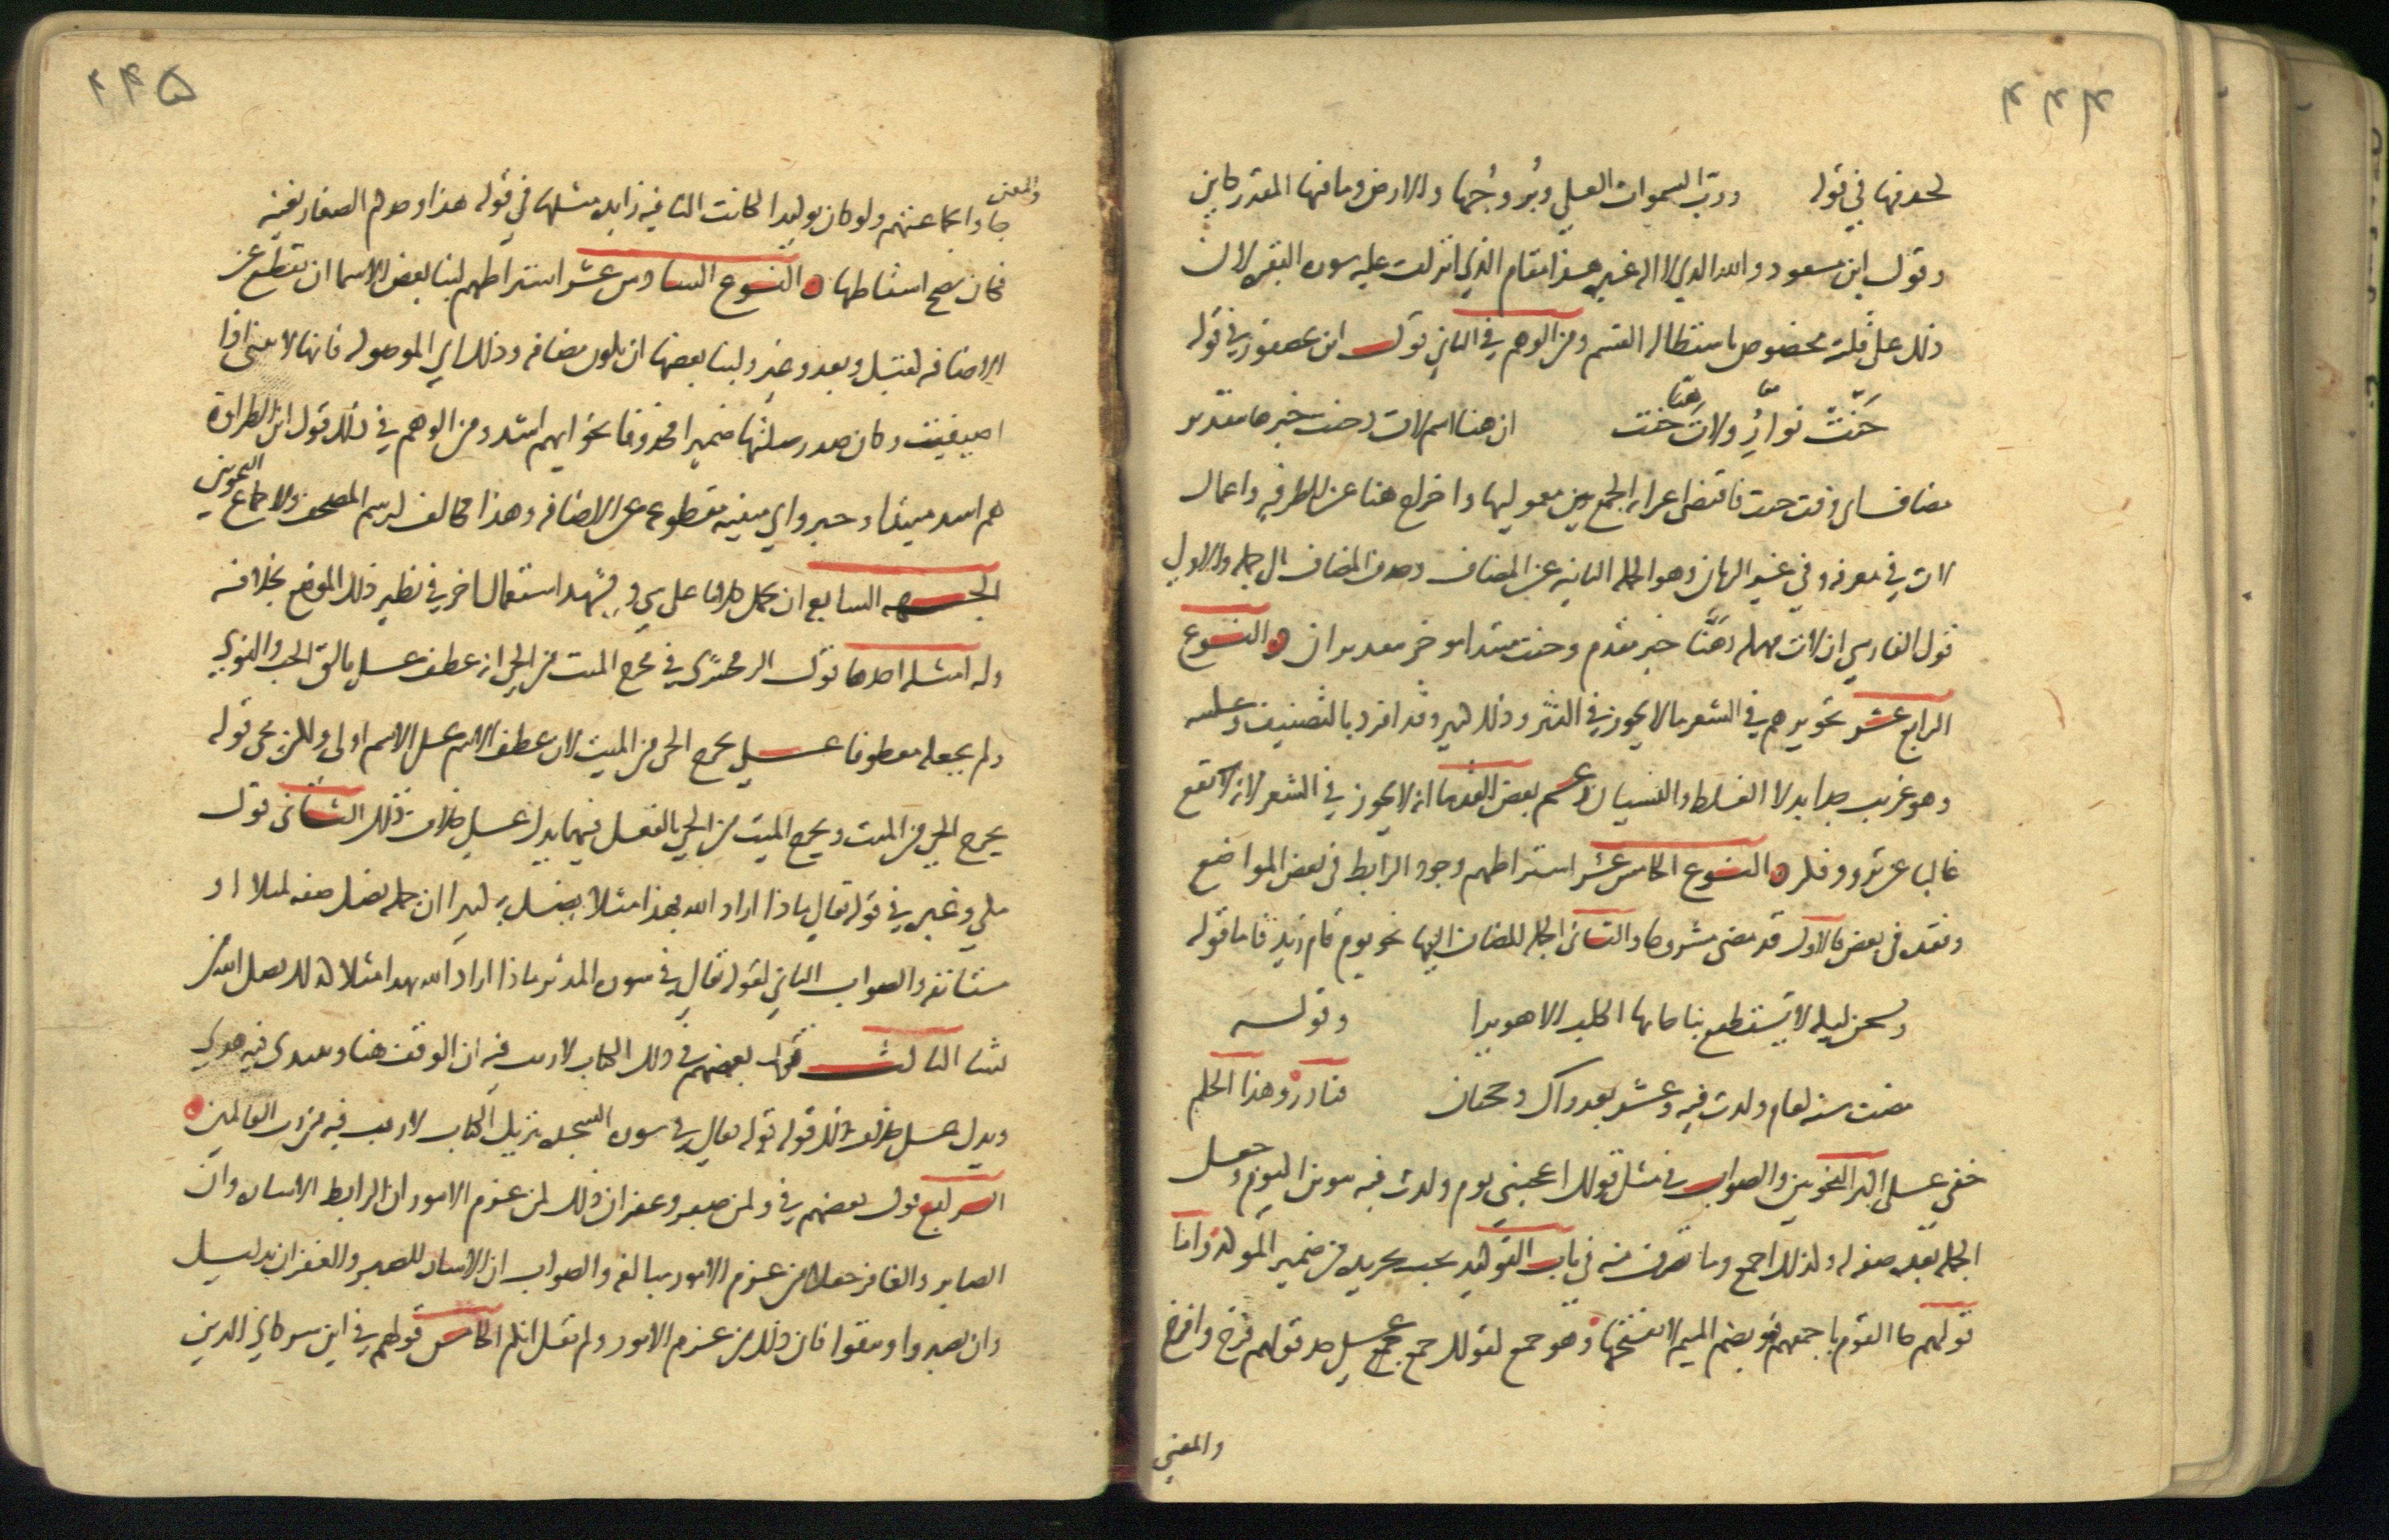 ٢٢٤
لحذفها في قوله ورب السموات العلى وبُروجُها والارض وما فيها المقدر كاين
وقول ابن مسعود والله الذي لا اله غيره هذا مقام الذي انزلت عليه سورة البقرة لان
ذلك على قلته مخصوص باستطالة القسم ومن الوهم في الثاني قول ابن عصفور في قوله
حَنّتْ نوارُ ولاتَ هَنّا حنت ان هنا اسم لات وحنت خبرها بتقدير
مضاف اي وقت حنت فاقتضى اعرابه الجمع بين معموليها واخراج هنا عن الظرفية واعمال
لات في معرفة وفي غير الزمان وهو الجملة النايبة عن المضاف وحذف المضاف الى جملة والاولى
قول الفارسي ان لات مهملة وهَنّا خبر مقدم وحنت مبتدا موخر بتقدير ان النوع
الرابع عشر تجويزهم في الشعر ما لا يجوز في النثر وذلك كثير وقد افرد بالتصنيف وعكسه
وهو غريب جدا بدلا الغلط والنسيان زعم بعض القدما انه لا يجوز في الشعر لانه لا يقع
غالبا عن تروٍ وفكر النوع الخامس عشر اشتراطهم وجود الرابط في بعض المواضع
وفقده في بعض فالاول قد مضى مشروحا والثاني الجملة المضاف اليها نحو يوم قام زيد فاما قوله
وتسخن ليلة لا يستطيع نباحا بها الكلب الا هريرا وقوله
مضت سنة لعام ولدت فيه وعشر بعد ذاك وحجتان فنادر وهذا الحكم
خفي على اكثر النحويين والصواب في مثل قولك اعجبني يوم ولدت فيه تنوين اليوم وجعل
الجملة بعده صفة له وكذلك اجمع وما تصرف منه في باب التوكيد يجب تجريده من ضمير المؤكد واما
قولهم جا القوم باجمعهم فهو بضم الميم لا بفتحها وهو جمع لقولك جمع على حد قولهم فرخ وافرخ
والمعنى
٢٢٥
والمعنى
جاوا بجماعتهم ولو كان توكيدا لكانت البا فيه زايدة مثلها في قوله هذا وجدكم الصغار بعينه
فكان يصح اسقاطها النوع السادس عشر اشتراطهم لبنا بعض الاسما ان تقطع عن
الاضافة كقبل وبعد وغير ولبنا بعضها ان يكون مضافة وذلك اي الموصولة فانها لا تبنى الا اذا
اضيفت وكان صدر صلتها ضميرا محذوفا نحو ايهم اشد ومن الوهم في ذلك قول ابن الطراوة
هم اشد مبتدا وخبر واي مبنية مقطوعة عن الاضافة وهذا مخالف لرسم المصحف والاجماع النحويين
الجهة السابع ان يحمل كلاما على شي ويشهد استعمال اخر في نظير ذلك الموضع بخلافه
وله امثلة احدها قول الزمخشري في مخرج الميت من الحي انه عطف على فالق الحب والنوى
ولم يجعله معطوفا على يخرج الحي من الميت لان عطف الاسم على الاسم اولى ولكن مجي قوله
يخرج الحي من الميت ويخرج الميت من الحي بالفعل فيهما يدل على خلاف ذلك الثاني قول
مكي وغيره في قوله تعالى ماذا اراد الله بهذا مثلا يضل به كثيرا ان جملة يضل صفة لمثلا او
مستانفة والصواب الثاني لقوله تعالى في سورة المدثر ماذا اراد الله بهذا مثلا كذلك يضل الله من
يشا الثالث قول بعضهم في ذلك الكتاب لا ريب فيه ان الوقف هنا ويبتدى فيه هدى
ويدل على خلاف ذلك قوله تعالى في سورة السجدة تنزيل الكتاب لا ريب فيه من رب العالمين
الرابع قول بعضهم في ولمن صبر وغفر ان ذلك لمن عزم الامور ان الرابط الاشارة وان
الصابر والغافر جعلا من عزم الامور مبالغة والصواب ان الاشارة للصبر والغفران بدليل
وان تصبروا وتتقوا فان ذلك من عزم الامور ولم يقل انكم الخامس قولهم في اين شركاي الذين